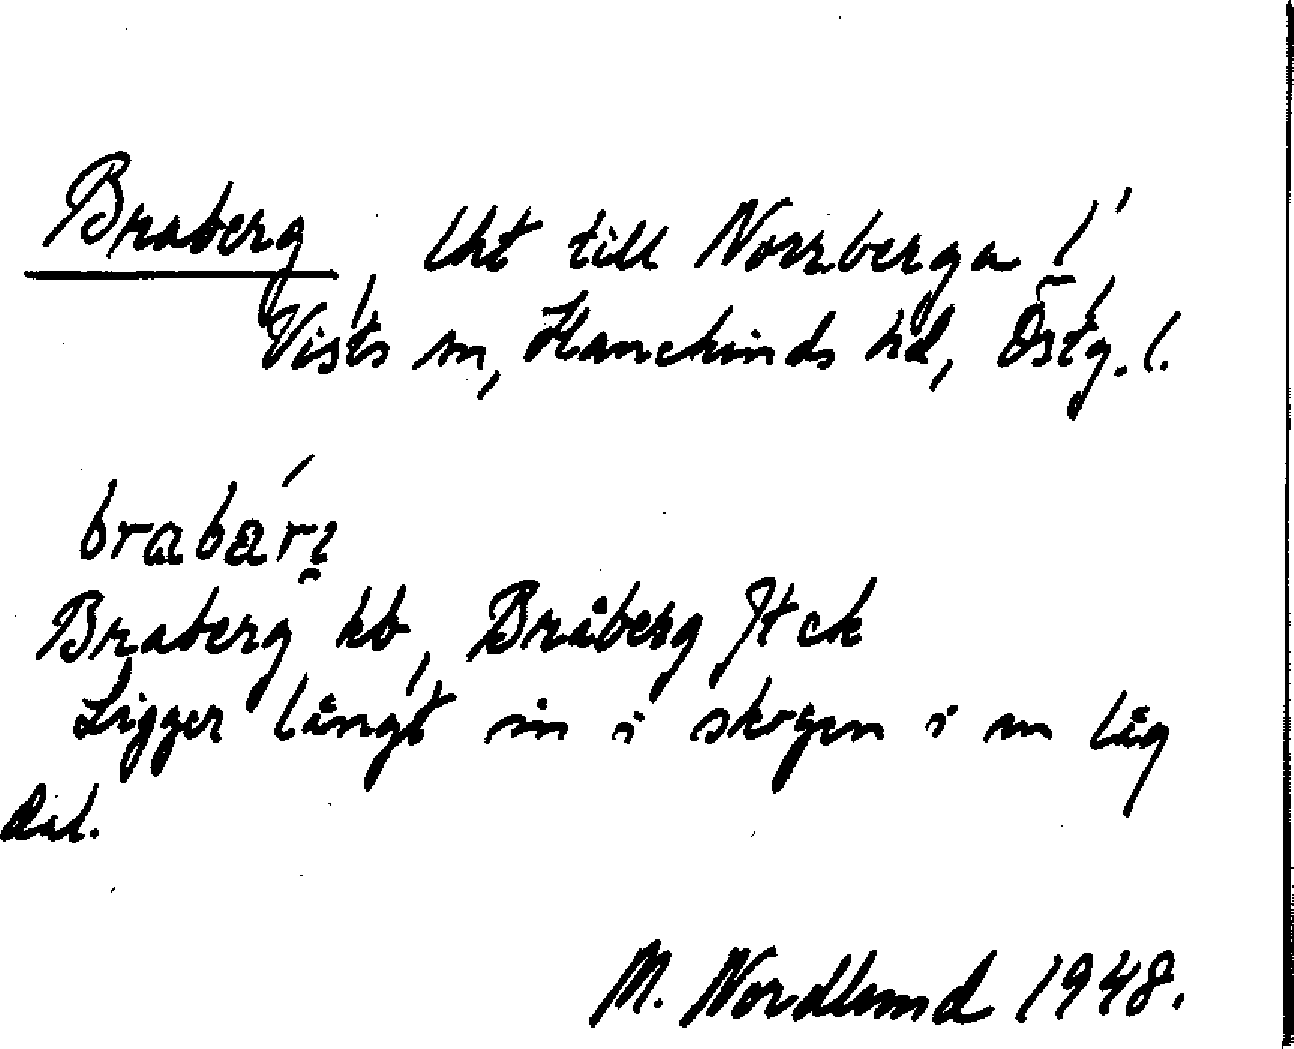 Braberg, lht till Norrberga 1,
Vists sn, Hanekinds hd, Östg. l.
brabárı̯
Braberg kb, Bråberg Jt ck
Ligger långt in i skogen i en låg
dal.
M. Nordlund 1948.